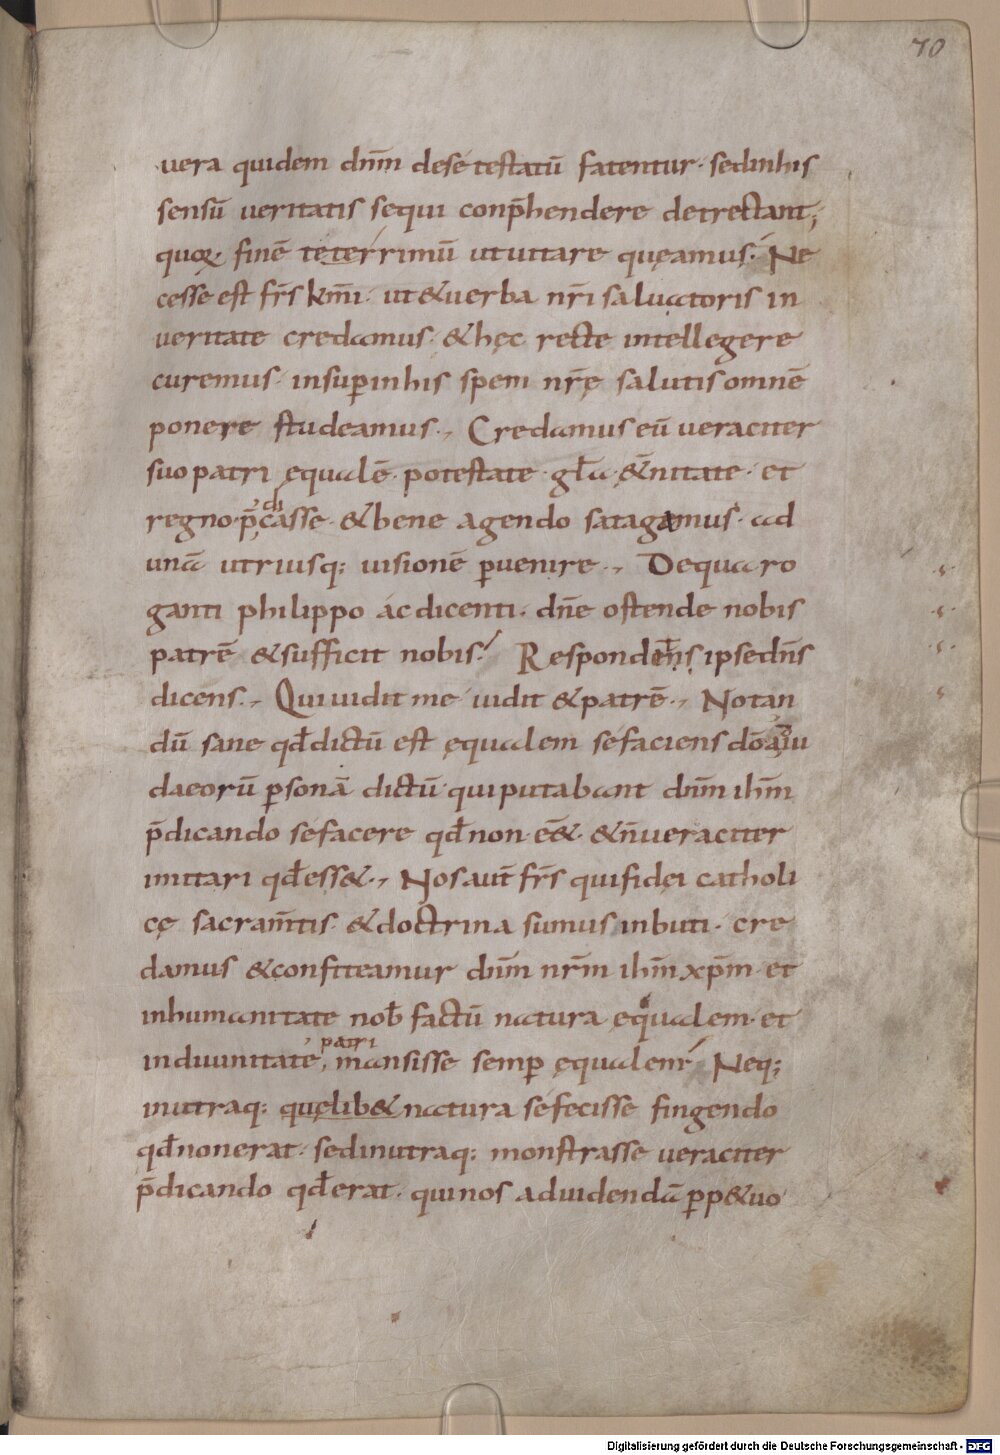 70
vera quidem dnm̄ de se testatū fatentur· sed in his
sensū veritatis sequi conp̄hendere detrectant;
quoꝝ· finē teterrimū ut vitare quęamus· Ne
cesse est fr̄s km̄i· ut & verba nr̄i salvatoris in
veritate credamus· & hęc recte intellegere
curemus· insuꝑ in his spem nr̄ę salutis omnē
ponere studeamus·, Credamus eū veraciter
suo patri ęqualē· potestate· gl̄a· & ęn̄itate· et
regno p̄dicasse· & bene agendo satagamus· ad
unā utriusq; visionē ꝑvenire·, De qua ro
ganti philippo ac dicenti· dn̄e ostende nobis
patrē & sufficit nobis· Respondens ipse dn̄s
dicens·, Qui vidit me vidit & patrē·, Notan
dū sane qd̄ dictū est ęqualem se faciens dō ad iu
daeorū ꝑsonā dictū· qui putabant dnm̄ ihm̄
p̄dicando se facere qd̄ non eē&· & n̄ veraciter
imitari qd̄ ess&·, Nos aut̄ fr̄s qui fidei catholi
cę sacram̄tis· & doctrina sumus inbuti· cre
damus & confiteamur dnm̄ nr̄m ihm̄ xp̄m· et
in humanitate nob̄ factū natura ęqualem· et
in divinitate patri mansisse semꝑ ęqualem· Neq;
in utraq; quęlib& natura se fecisse fingendo
qd̄ non erat· sed in utraq; monstrasse veraciter
p̄dicando qd̄ erat· qui nos ad videndā ꝑp&uo
Digitalisierung gefördert durch die Deutsche Forschungsgemeinschaft - DFG